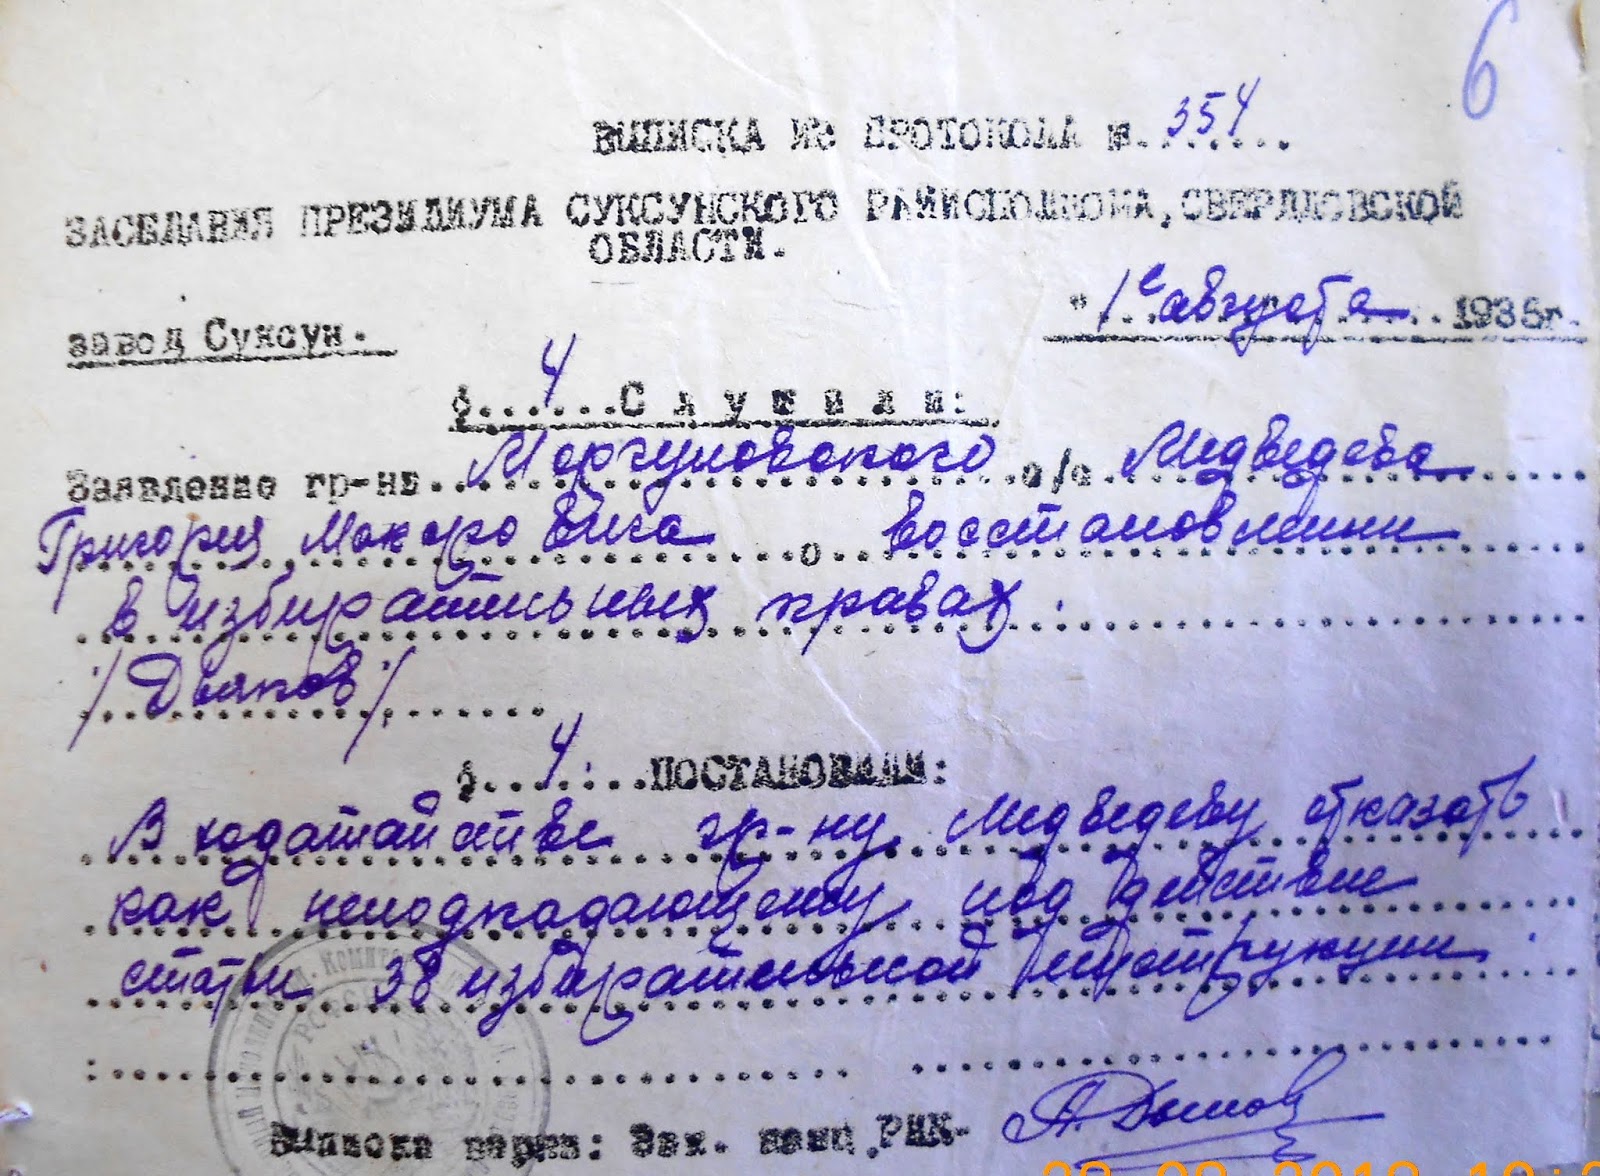 6
ВЫПИСКА ИЗ ПРОТОКОЛА №. 354
ЗАСЕДАНИЯ ПРЕЗИДИУМА СУКСУНСКОГО РАЙИСПОЛКОМА, СВЕРДЛОВСКОЙ
ОБЛАСТИ.
"1е августа 1935г.
завод Суксун.
§ 4 Слушали:
Заявление гр-на Моргуновского с/с Медведева
Григория Макаровича о восстановлении
в избирательных правах.
/Дьяков/.
§ 4: ПОСТАНОВИЛИ:
В ходатайстве гр-ну Медведеву отказать
как неподпадающему под действие
статьи 38 избирательной инструкции.
Выписка верна: Зав. канц. РИК-